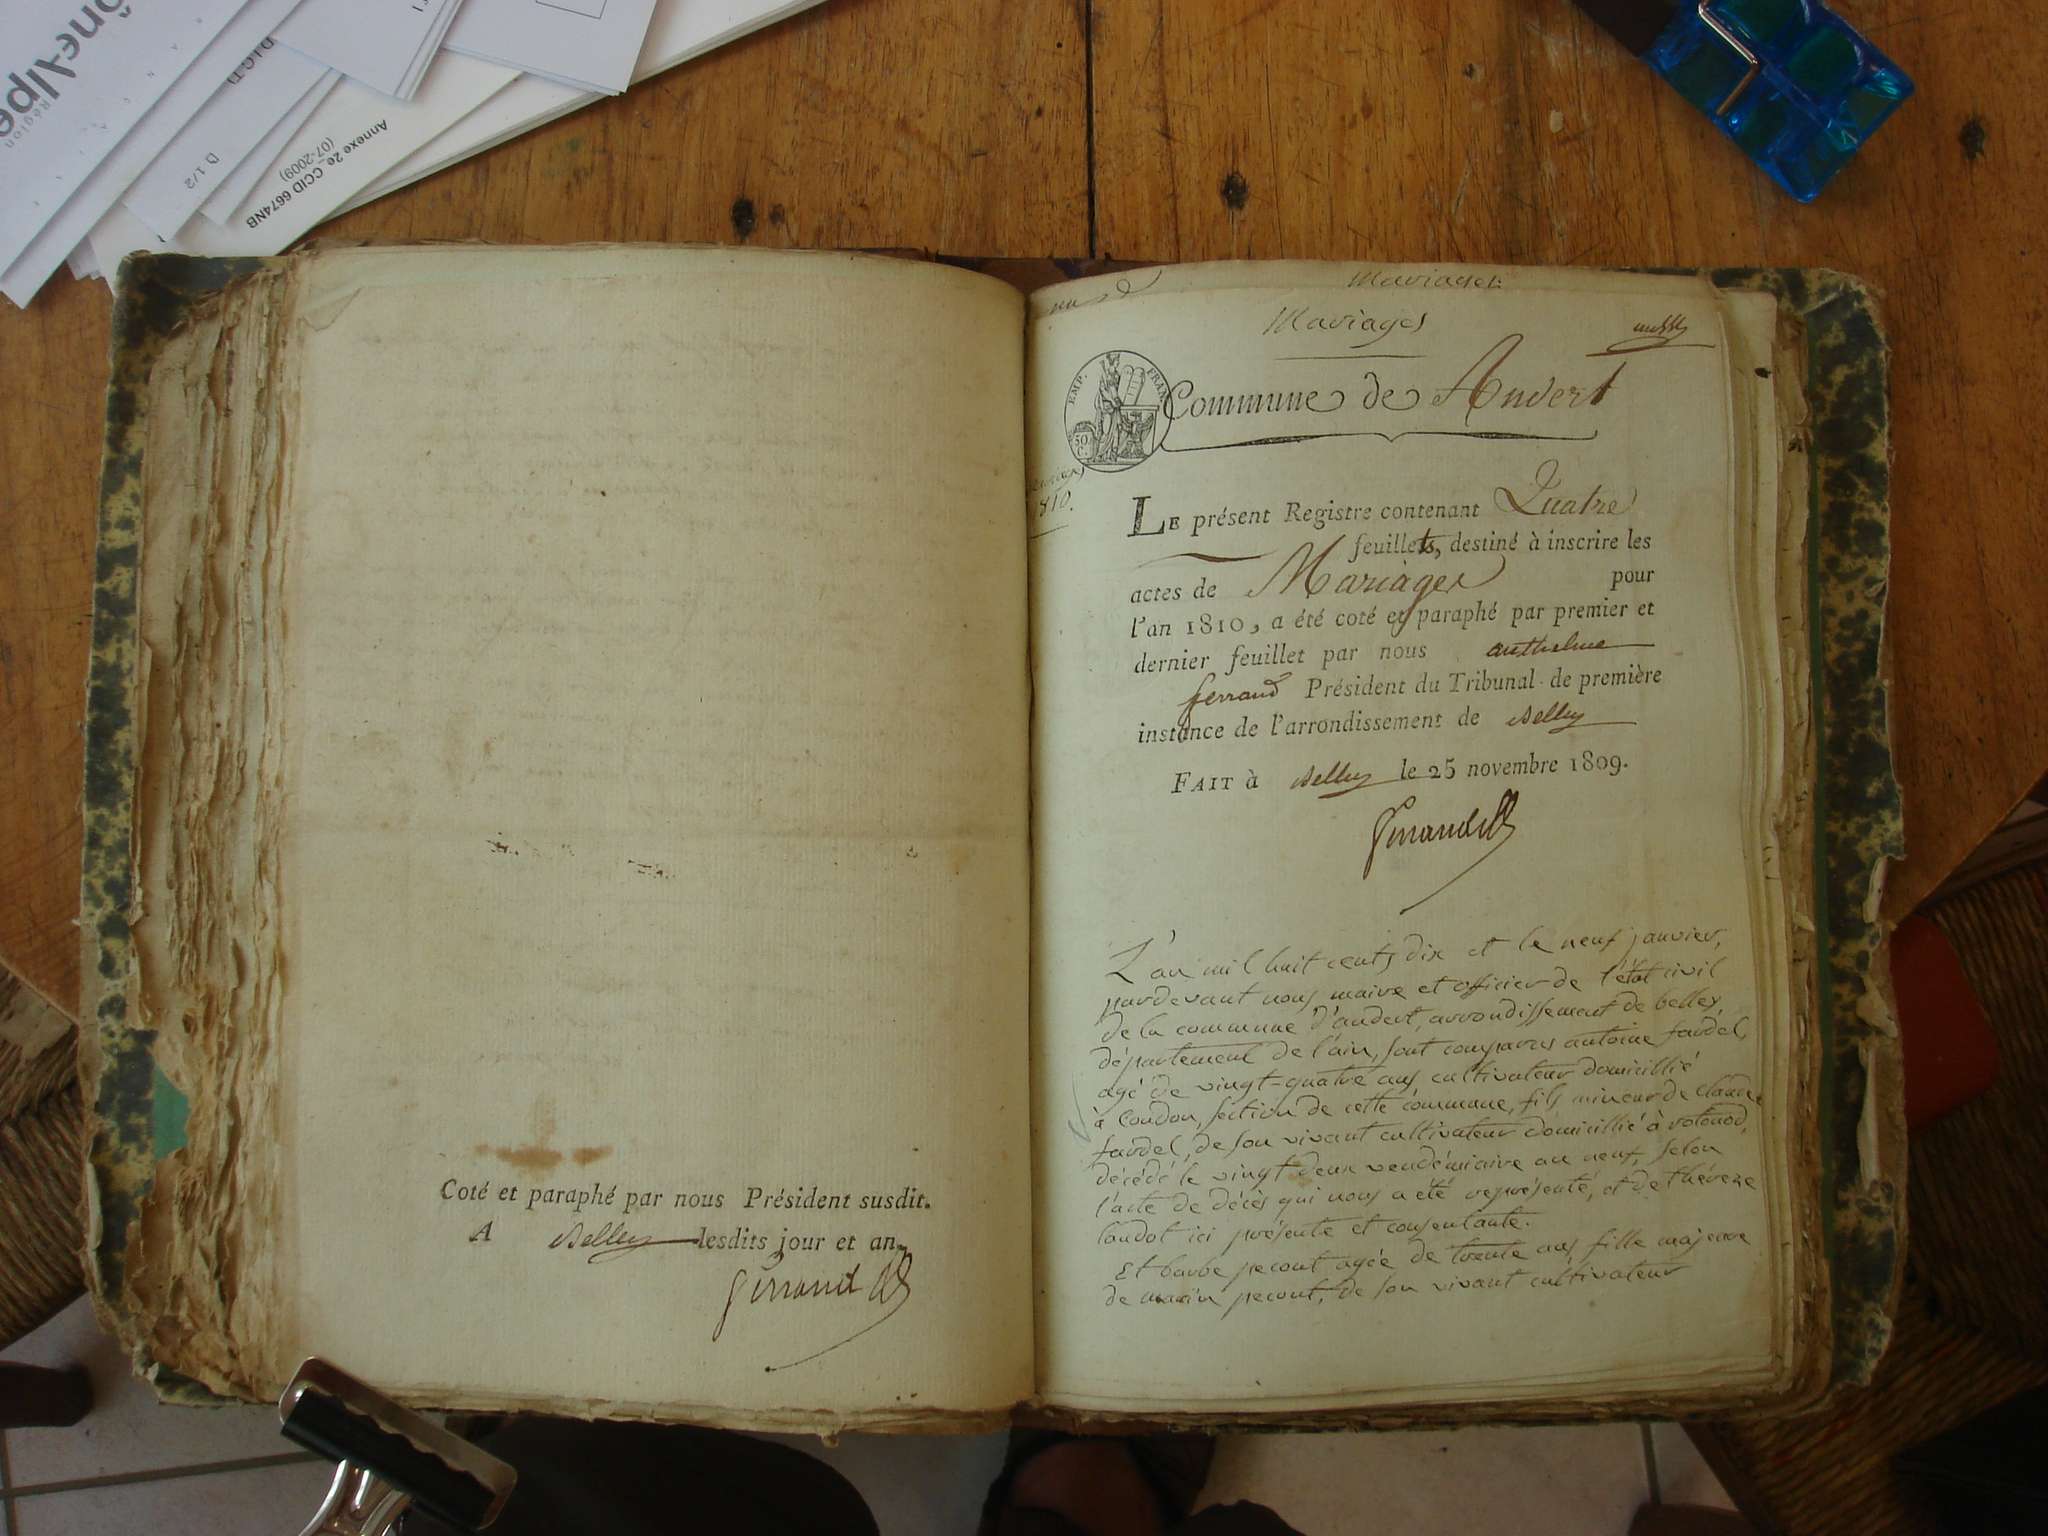 Rhône-Alpes
Région
D.I.C.T)
D 1/2
Annexe 2e_CCID 6674NB
(07-2009)
Coté et paraphé par nous Président susdit.
A Belley lesdits jour et an.
Ferrand
Mariages
Mariages
EMP. FRAN.
50 C.
Commune de Andert
1810.
LE présent Registre contenant Quatre
feuillets, destiné à inscrire les
actes de Mariages pour
l'an 1810, a été coté et paraphé par premier et
dernier feuillet par nous anthelme
ferrand Président du Tribunal de première
instance de l'arrondissement de Belley
FAIT à Belley le 25 novembre 1809.
Ferrand
L'an mil huit cents dix et le neuf janvier,
pardevant nous maire et officier de l'état civil
de la commune d'andert, arrondissement de belley,
département de l'ain, sont comparus antoine fardel,
agé de vingt-quatre ans, cultivateur domicillié
à Coudon, section de cette commune, fils mineur de claude
fardel, de son vivant cultivateur domicillié à votonod,
décédé le vingt deux vendémiaire an neuf, selon
l'acte de décès qui nous a été représenté, et de thérèze
laudot ici présente et consentante.
Et barbe pecout agée de trente ans, fille majeure
de marin pecout, de son vivant cultivateur